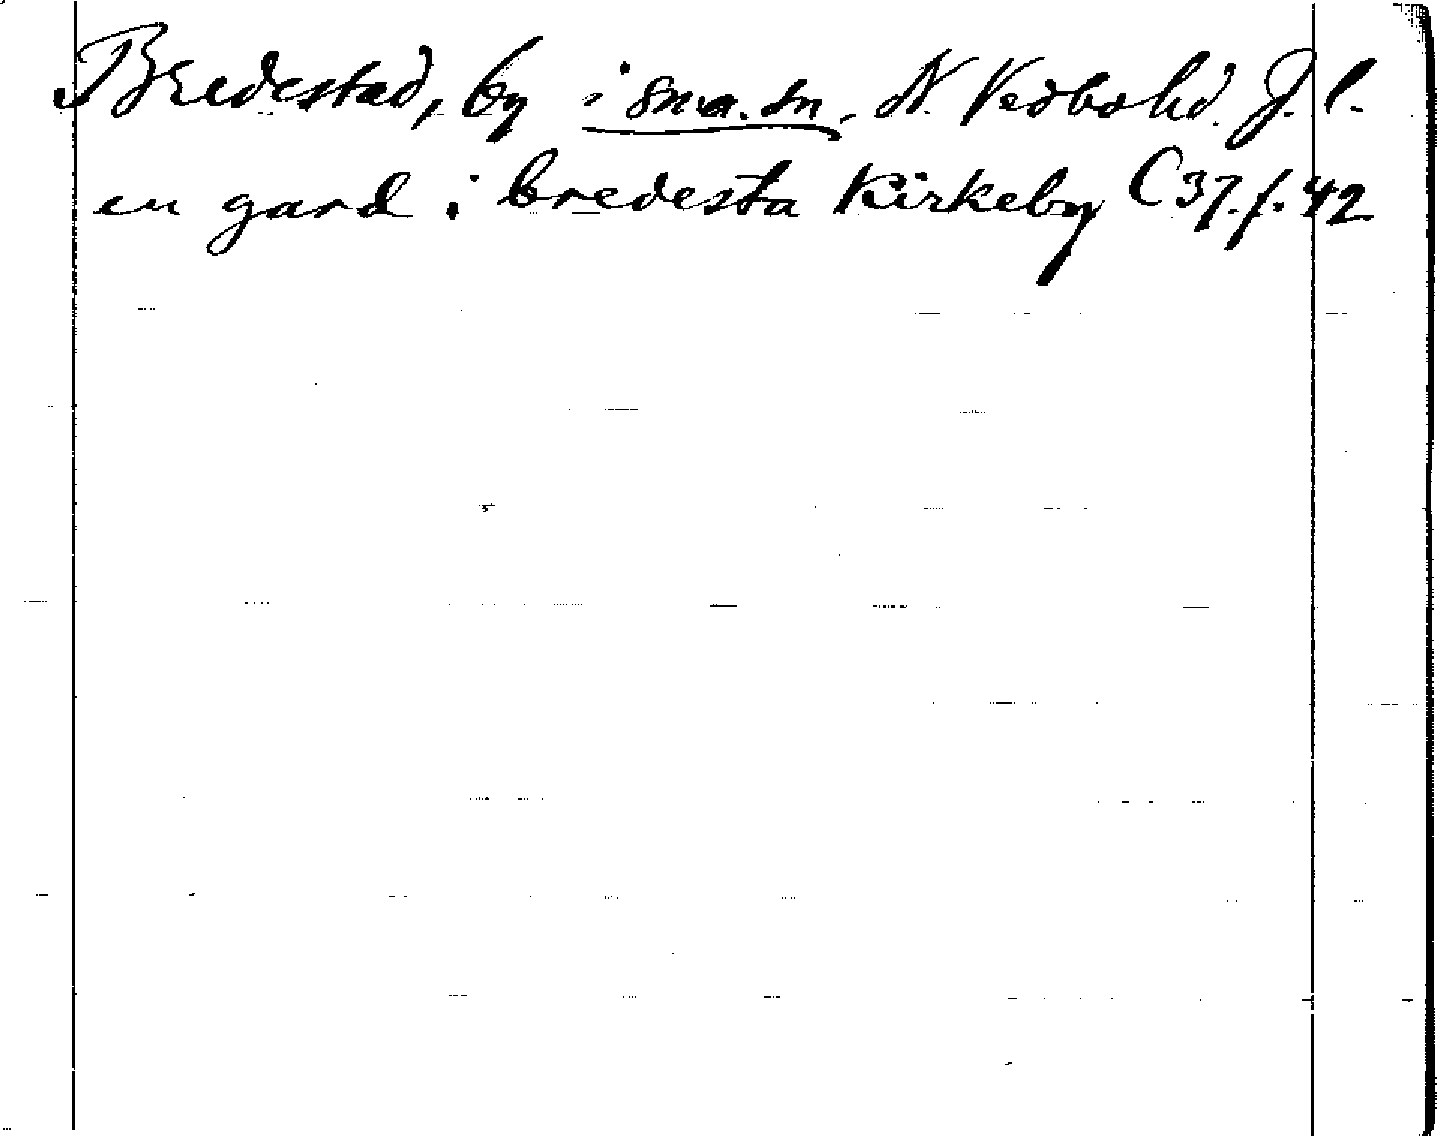 Bredestad, by i sn. a. sn. N. Vedbo hd. J. l.
en gard i bredesta Kirkeby C 37. f. 42